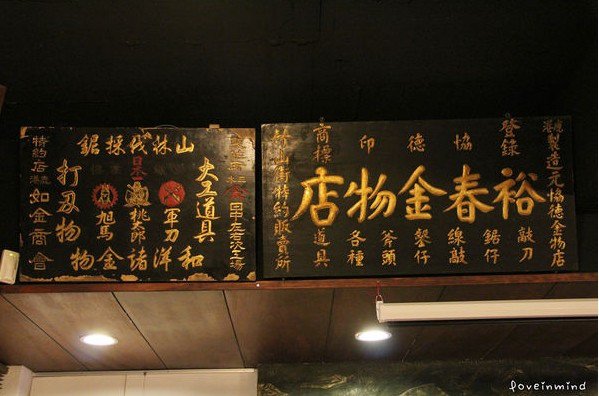 登錄
協德印
商標
裕春金物店
總製造元協德金物店
敲刀
鋸仔
線敲
鏨仔
斧頭
各種
道具
竹山街特約販賣所
山林伐採鋸
日本
大工道具
軍刀
桃太郎
旭馬
打刃物
和洋諸金物
特約店
如金商會
loveinmind